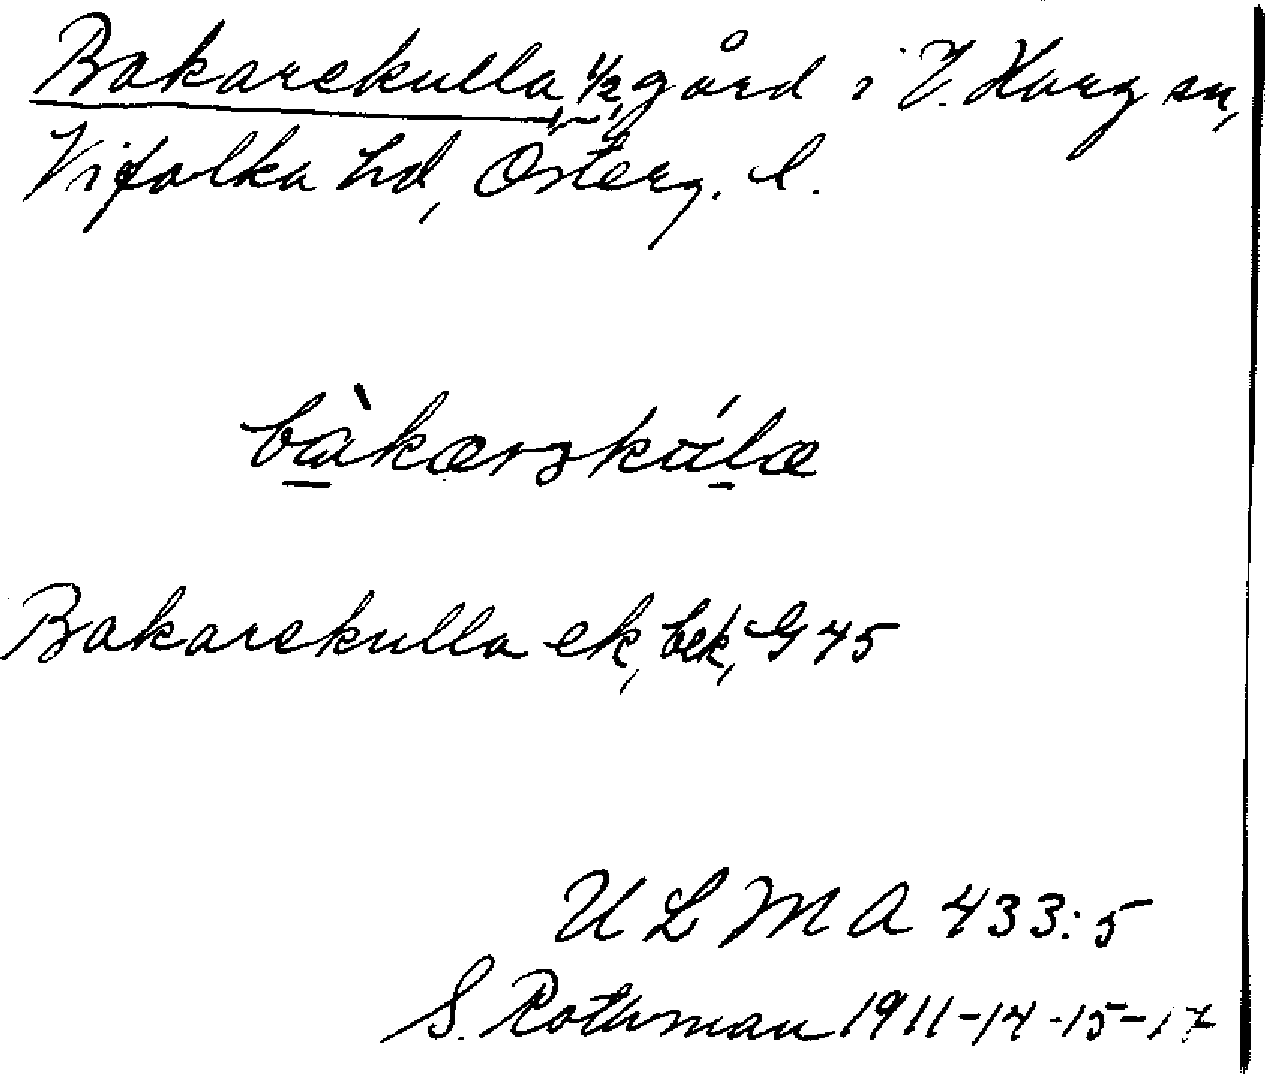 Bakarekulla, 1/2 gård i V. Harg sn,
Vifolka hd, Österg. l.
bàkærskúlæ
Bakarekulla ek, bek, G 45
ULMA 433:5
S. Rothman 1911-14-15-17